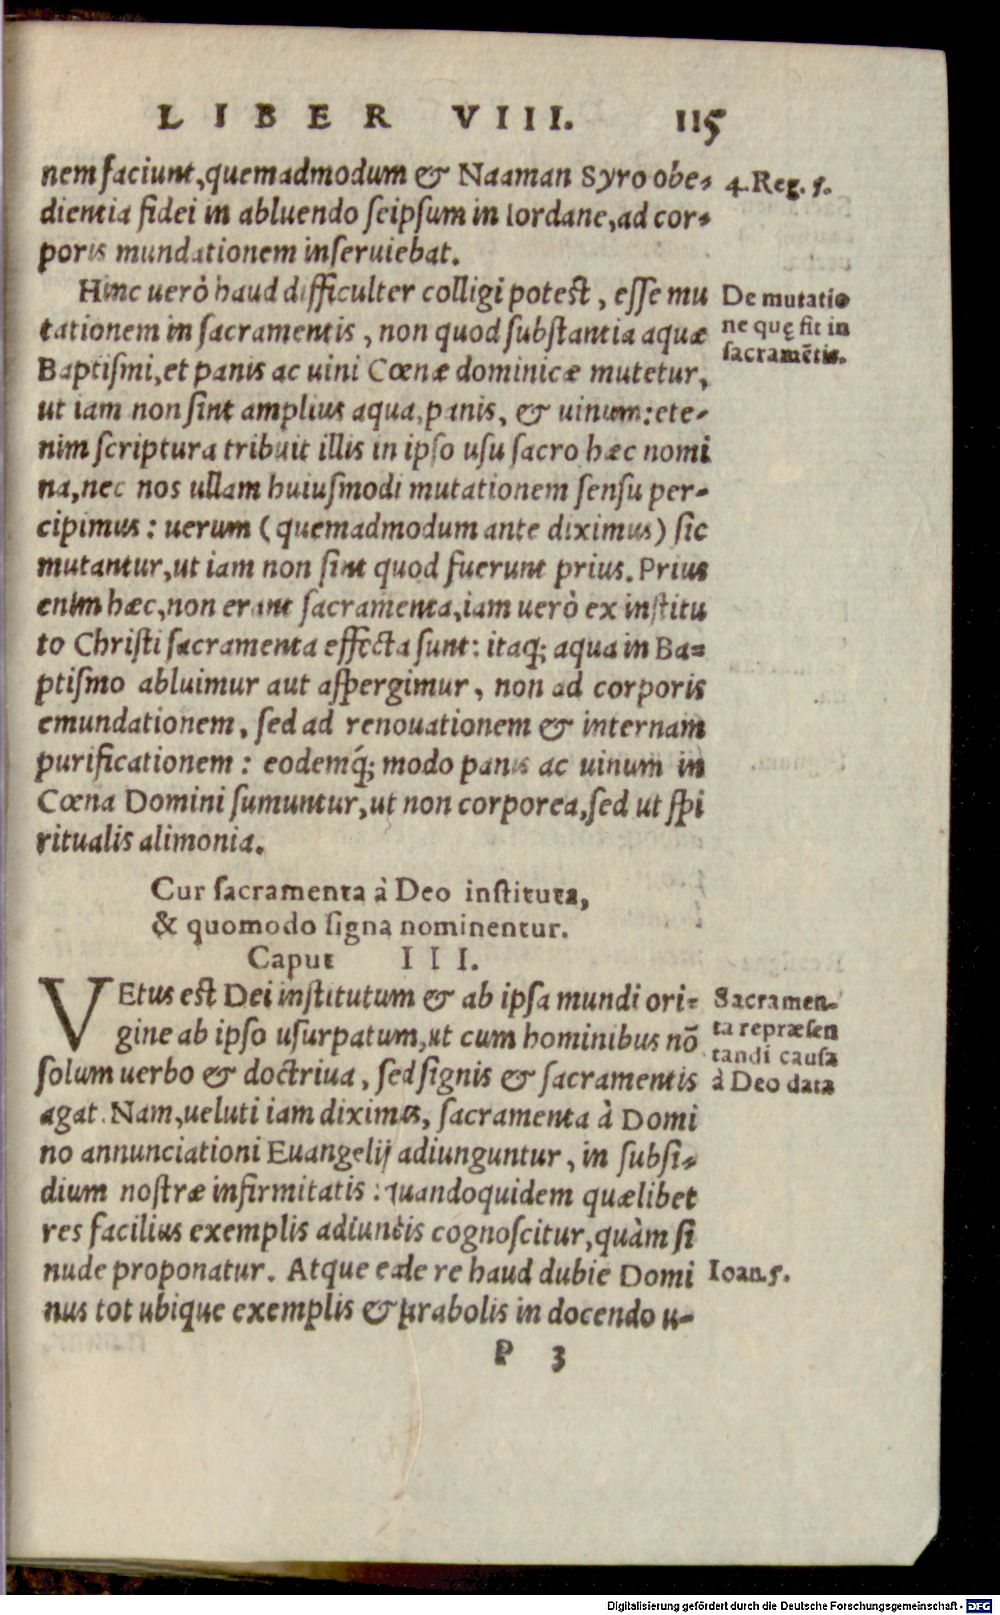 LIBER VIII. 115
nem faciunt, quemadmodum & Naaman Syro obe-
dientia fidei in abluendo seipsum in Iordane, ad cor-
poris mundationem inseruiebat.
4. Reg. 5.
Hinc uerò haud difficulter colligi potest, esse mu
tationem in sacramentis, non quod substantia aquæ
Baptismi, et panis ac uini Cœnæ dominicæ mutetur,
ut iam non sint amplius aqua, panis, & uinum: ete-
nim scriptura tribuit illis in ipso usu sacro hæc nomi
na, nec nos ullam huiusmodi mutationem sensu per-
cipimus: uerum (quemadmodum ante diximus) sic
mutantur, ut iam non sint quod fuerunt prius. Prius
enim hæc, non erant sacramenta, iam uerò ex institu
to Christi sacramenta effecta sunt: itaq; aqua in Ba-
ptismo abluimur aut aspergimur, non ad corporis
emundationem, sed ad renouationem & internam
purificationem: eodemq́; modo panis ac uinum in
Cœna Domini sumuntur, ut non corporea, sed ut spi
ritualis alimonia.
De mutatio
ne quę fit in
sacramẽtis.
Cur sacramenta à Deo instituta,
& quomodo signa nominentur.
Caput III.
VEtus est Dei institutum & ab ipsa mundi ori-
gine ab ipso usurpatum, ut cum hominibus nõ
solum uerbo & doctriua, sed signis & sacramentis
agat. Nam, ueluti iam diximus, sacramenta à Domi
no annunciationi Euangelij adiunguntur, in subsi-
dium nostræ infirmitatis: quandoquidem quælibet
res facilius exemplis adiunctis cognoscitur, quàm si
nude proponatur. Atque eade re haud dubie Domi
nus tot ubique exemplis & parabolis in docendo u-
Sacramen-
ta repræsen
tandi causa
à Deo data
Ioan. 5.
P 3
Digitalisierung gefördert durch die Deutsche Forschungsgemeinschaft - DFG